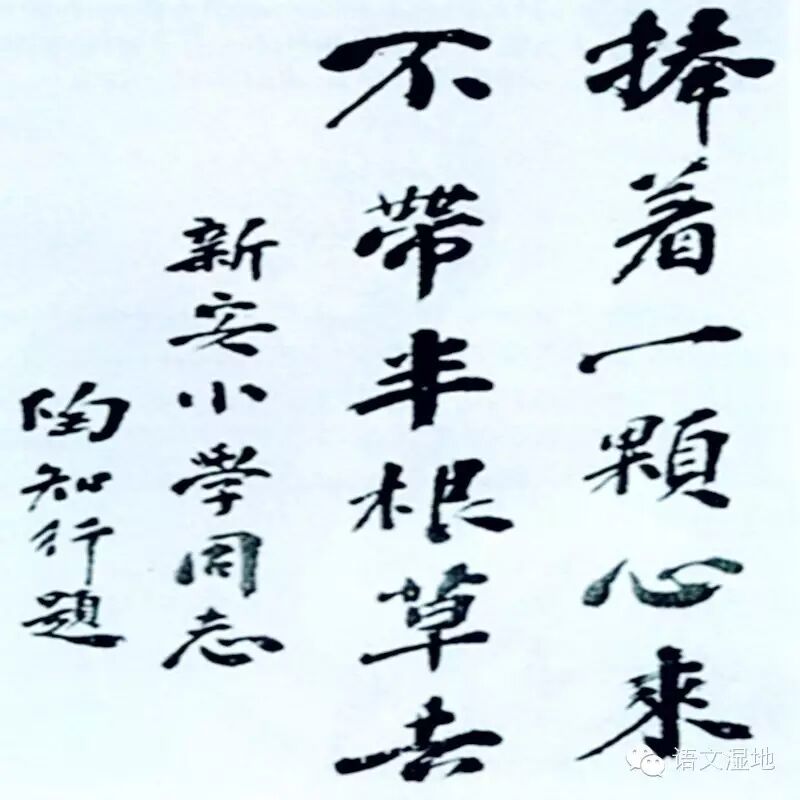 捧着一顆心來
不帶半根草去
新安小學同志
陶知行題
语文湿地